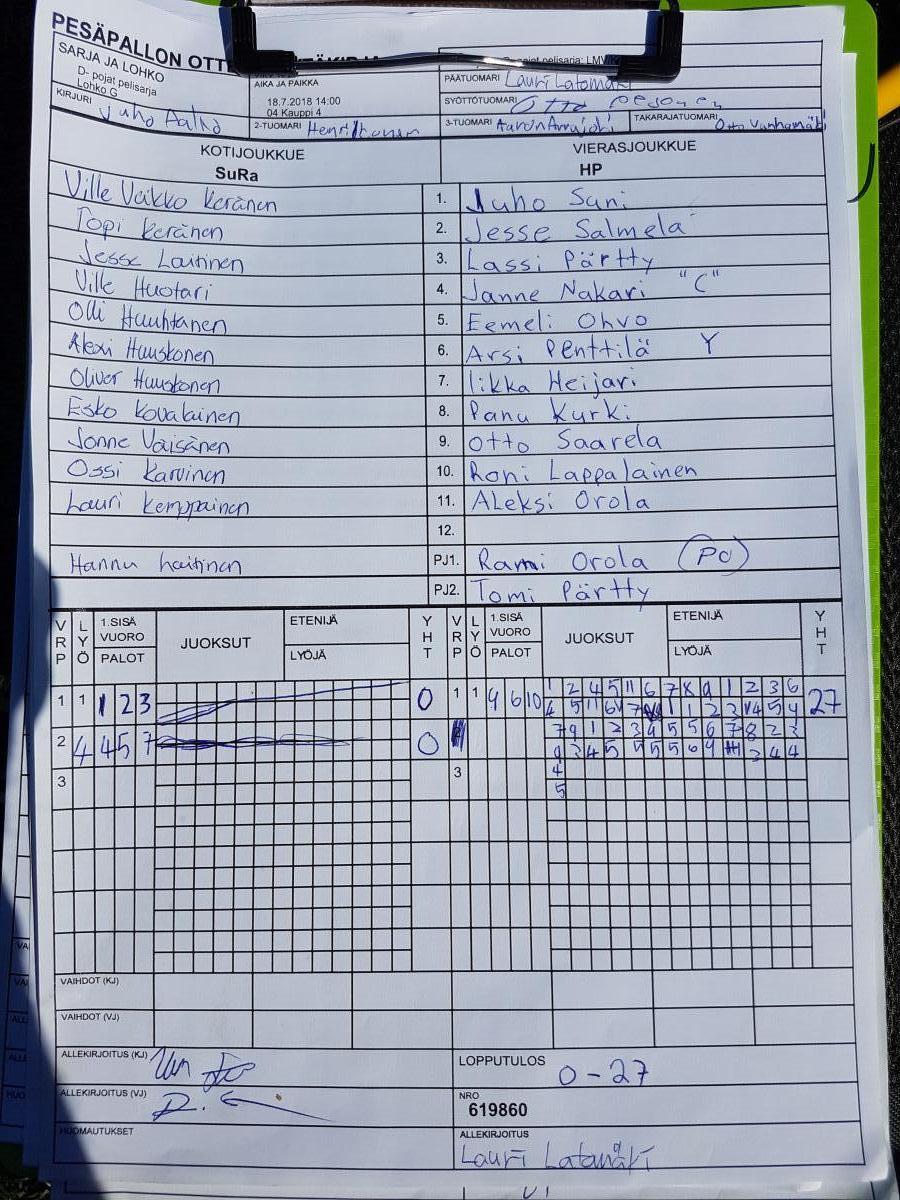 PESÄPALLON OTT
SARJA JA LOHKO
D- pojat pelisarja
Lohko G
KIRJURI Juho Aalto
AIKA JA PAIKKA
18.7.2018 14:00
04 Kauppi 4
2-TUOMARI
PÄÄTUOMARI Lauri Latomäki
SYÖTTÖTUOMARI Otto Pesonen
3-TUOMARI Aaron
TAKARAJATUOMARI Otto Vanhamäki
KOTIJOUKKUE VIERASJOUKKUE
SuRa HP
Ville Veikko Keränen 1. Juho Suni
Topi Keränen 2. Jesse Salmela
Jesse Laitinen 3. Lassi Pärtty
Ville Huotari 4. Janne Nakari "C"
Olli Huuhtanen 5. Eemeli Ohvo
Alexi Huuskonen 6. Arsi Penttilä Y
Oliver Huuskonen 7. Iikka Heijari
Esko Kovalainen 8. Panu Kurki
Jonne Väisänen 9. Otto Saarela
Ossi Karvinen 10. Roni Lappalainen
Lauri Kemppainen 11. Aleksi Orola
12.
Hannu Laitinen PJ1. Rami Orola (PC)
PJ2. Tomi Pärtty
VRP LYÖ 1.SISÄ VUORO PALOT JUOKSUT ETENIJÄ LYÖJÄ YHT VRP LYÖ 1.SISÄ VUORO PALOT JUOKSUT ETENIJÄ LYÖJÄ YHT
1 1 1 2 3 0 1 1 9 6 10 1 2 4 5 11 6 7 8 9 1 2 3 6 27
2 4 4 5 7 0 7 9 1 2 3 4 5 5 6 7 8 2 3
3 3 4
5
VAIHDOT (KJ)
VAIHDOT (VJ)
ALLEKIRJOITUS (KJ) LOPPUTULOS 0-27
ALLEKIRJOITUS (VJ) NRO
619860
HUOMAUTUKSET ALLEKIRJOITUS
Lauri Latomäki